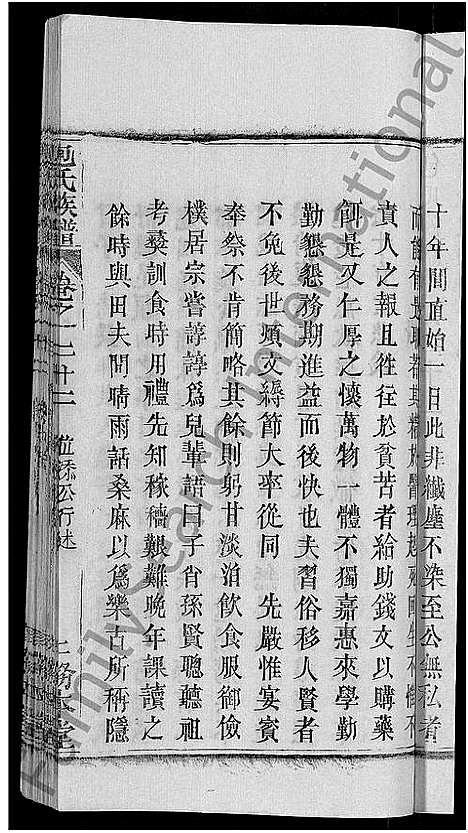 十年間直始一日此非纖塵不染至公無私者
而能有是耶若其精於醫理起死回生不惟不
責人之報且往往於貧苦者給助錢文以購藥
餌是又仁厚之懷萬物一體不獨嘉惠來學勤
勤懇懇務期進益而後快也夫習俗移人賢者
不免後世煩文縟節大率從同 先嚴惟宴賓
奉祭不肯簡略其餘則躬甘淡泊飲食服御儉
樸居宗嘗諄諄爲兒輩語曰子肖孫賢聰聽祖
考彝訓食時用禮先知稼穡艱難晚年課讀之
餘時與田夫問晴雨話桑麻以爲樂古所稱隱
包氏族譜 卷之
公行述
堂
Family Search International